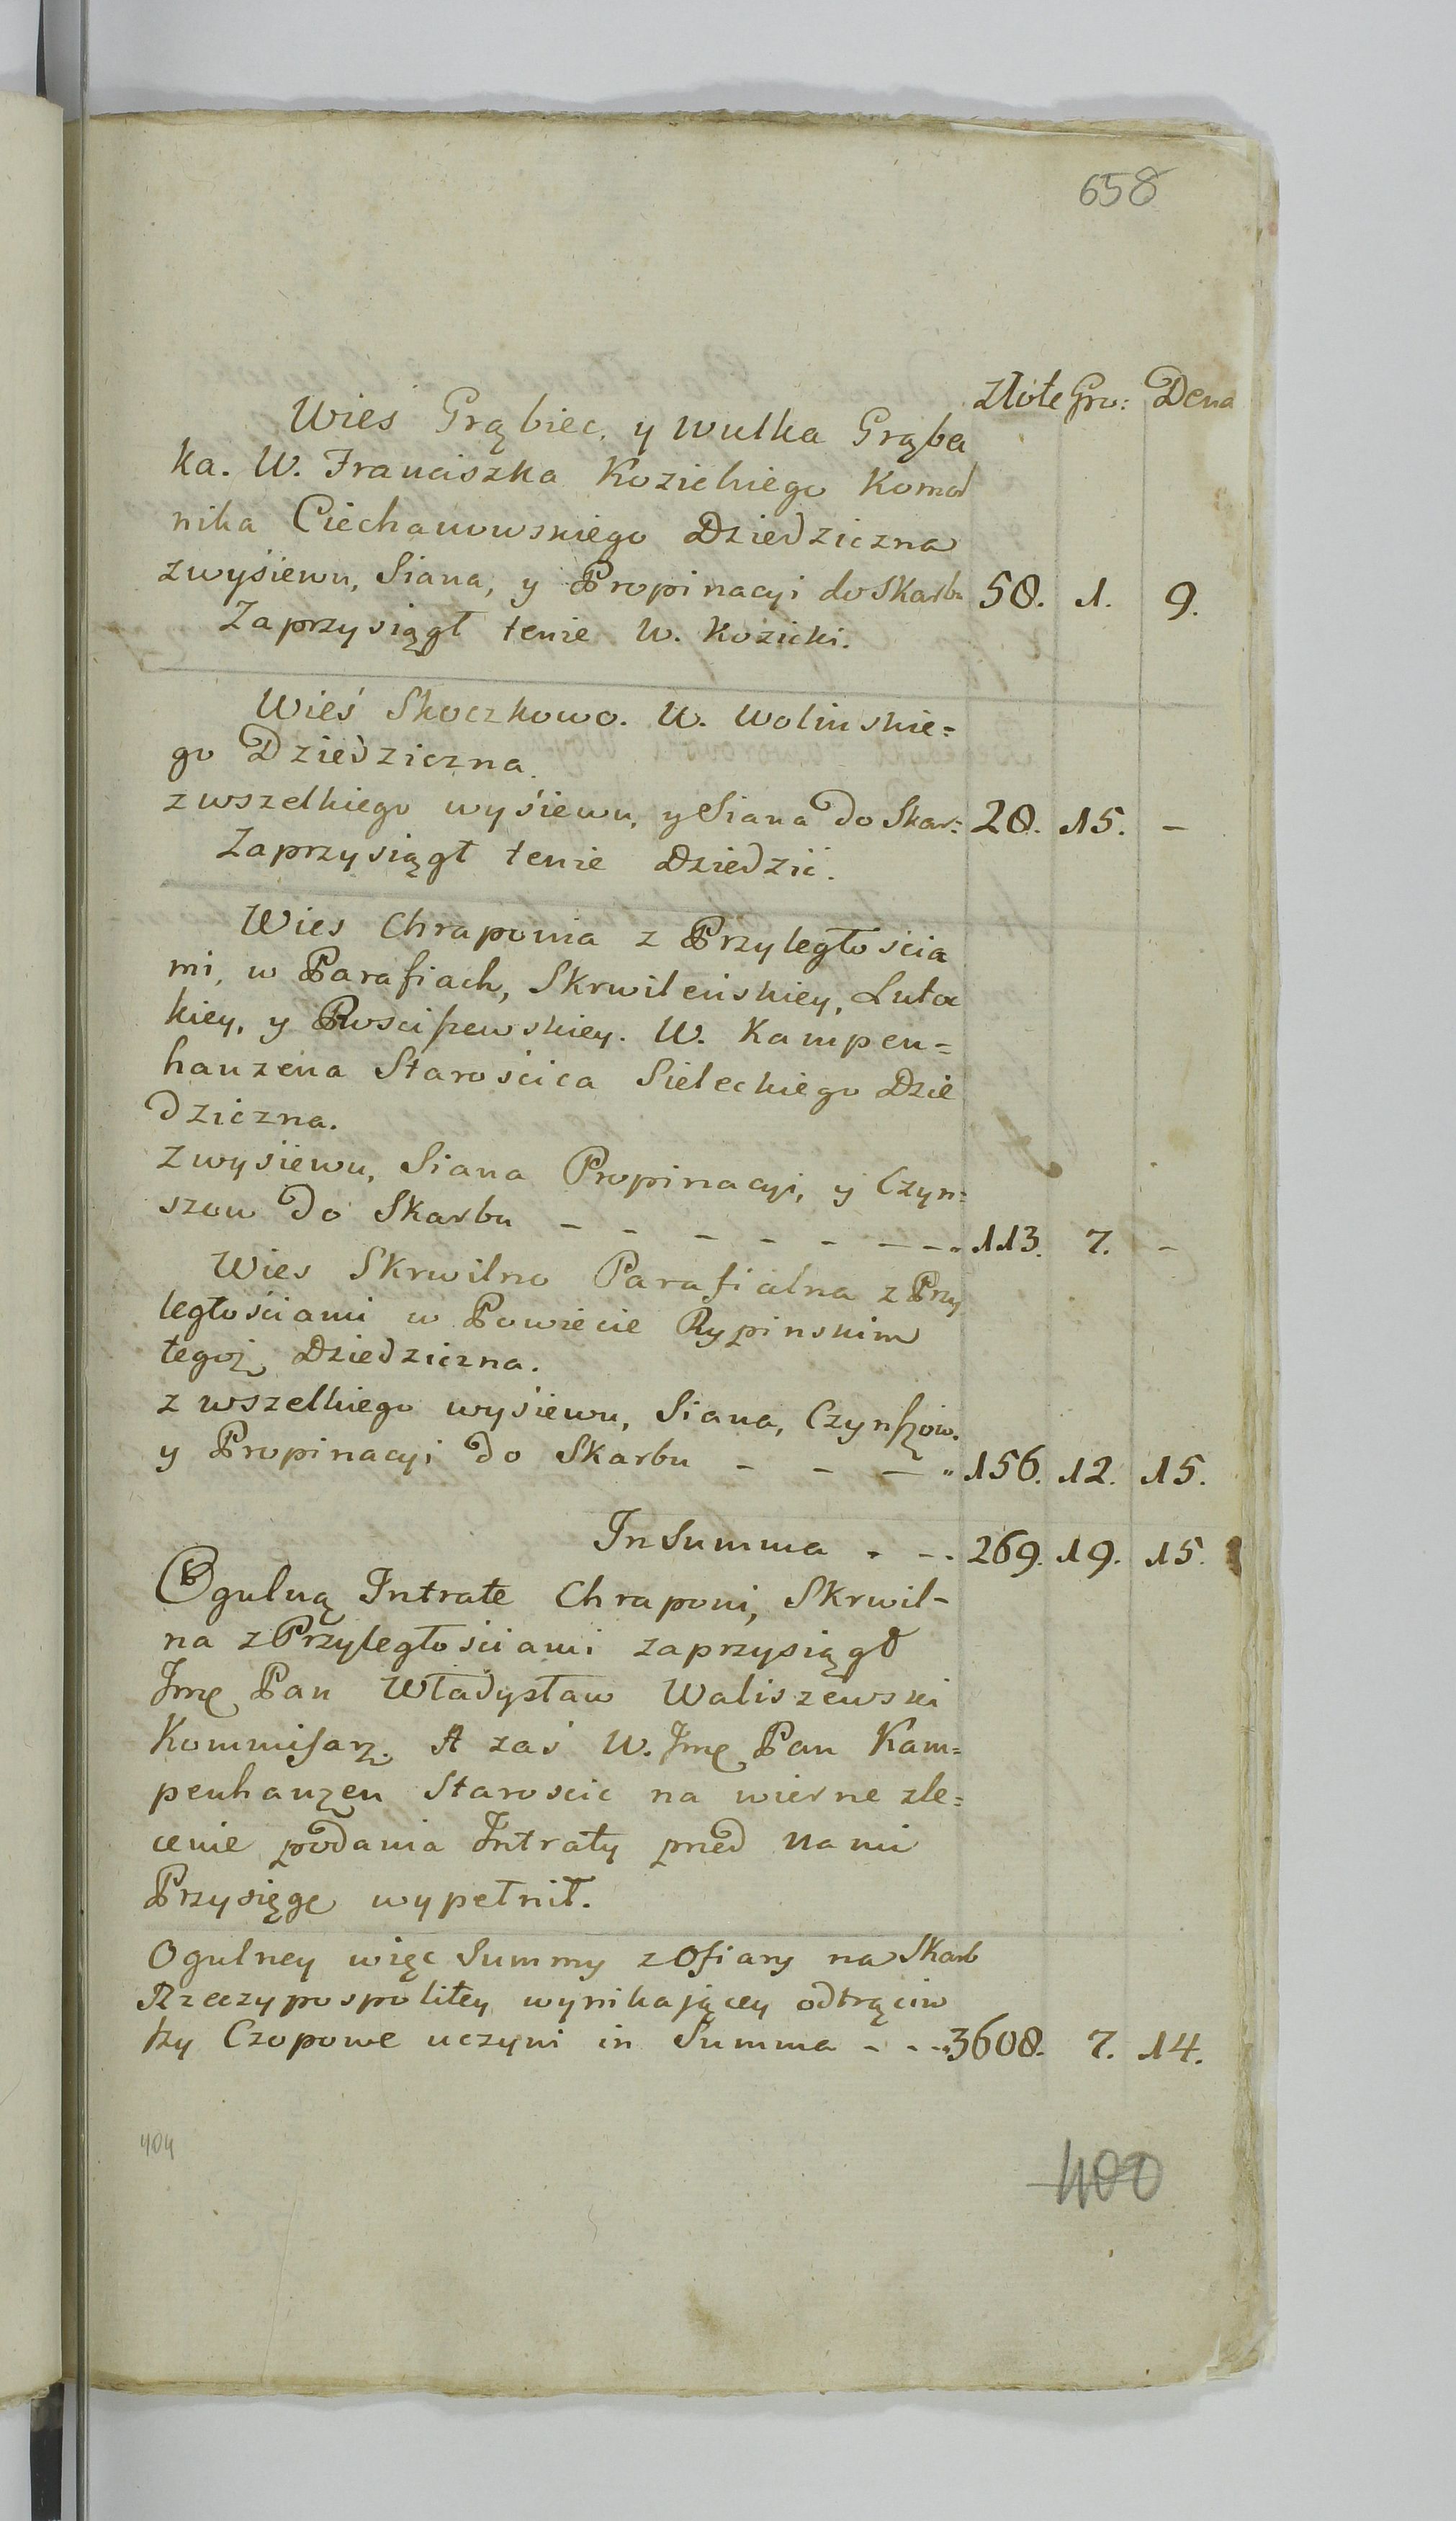 658
Złote Gro: Dena
Wieś Grąbiec, y Wulka Grąba
ka. W. Franciszka Kozickiego Komor
nika Ciechanowskiego Dziedziczna
z wysiewu, Siana, y Propinacyi do Skarbu 58. 1. 9.
Zaprzysiągł tenże W. Kozicki.
Wieś Skoczkowo. W. Wolinskie=
go Dziedziczna.
z wszelkiego wysiewu, y Siana do Skar: 28. 15. –
Zaprzysiągł tenże Dziedzic.
Wies Chraponia z Przyległościa
mi, w Parafiach, Skrwileńskiey, Luto
kiey, y Rosciszewskiey. W. Kampen=
hauzena Starościca Sieleckiego Dzie
dziczna.
z wysiewu, Siana Propinacyi, y Czyn=
szow do Skarbu – – – – – – – 113. 7. –
Wies Skrwilno Parafialna z Przy
ległościami w Powiecie Rypinskim
tegoż Dziedziczna.
z wszelkiego wysiewu, Siana, Czynszow.
y Propinacyi do Skarbu – – – 156. 12. 15.
In Summa . – . 269. 19. 15.
Ogulną Intrate Chraponi, Skrwil-
na z Przyległościami zaprzysiągł
Jmę Pan Władysław Waliszewski
Kommisarz. A zaś W. Jmę Pan Kam=
penhauzen Staroscic na wierne zle=
cenie podania Intraty przed Nami
Przysięgę wypełnił.
Ogulney więc Summy z Ofiary na Skarb
Rzeczypospolitey wynikającey odtrąciw
szy Czopowe uczyni in Summa - - - 3608. 7. 14.
404
400